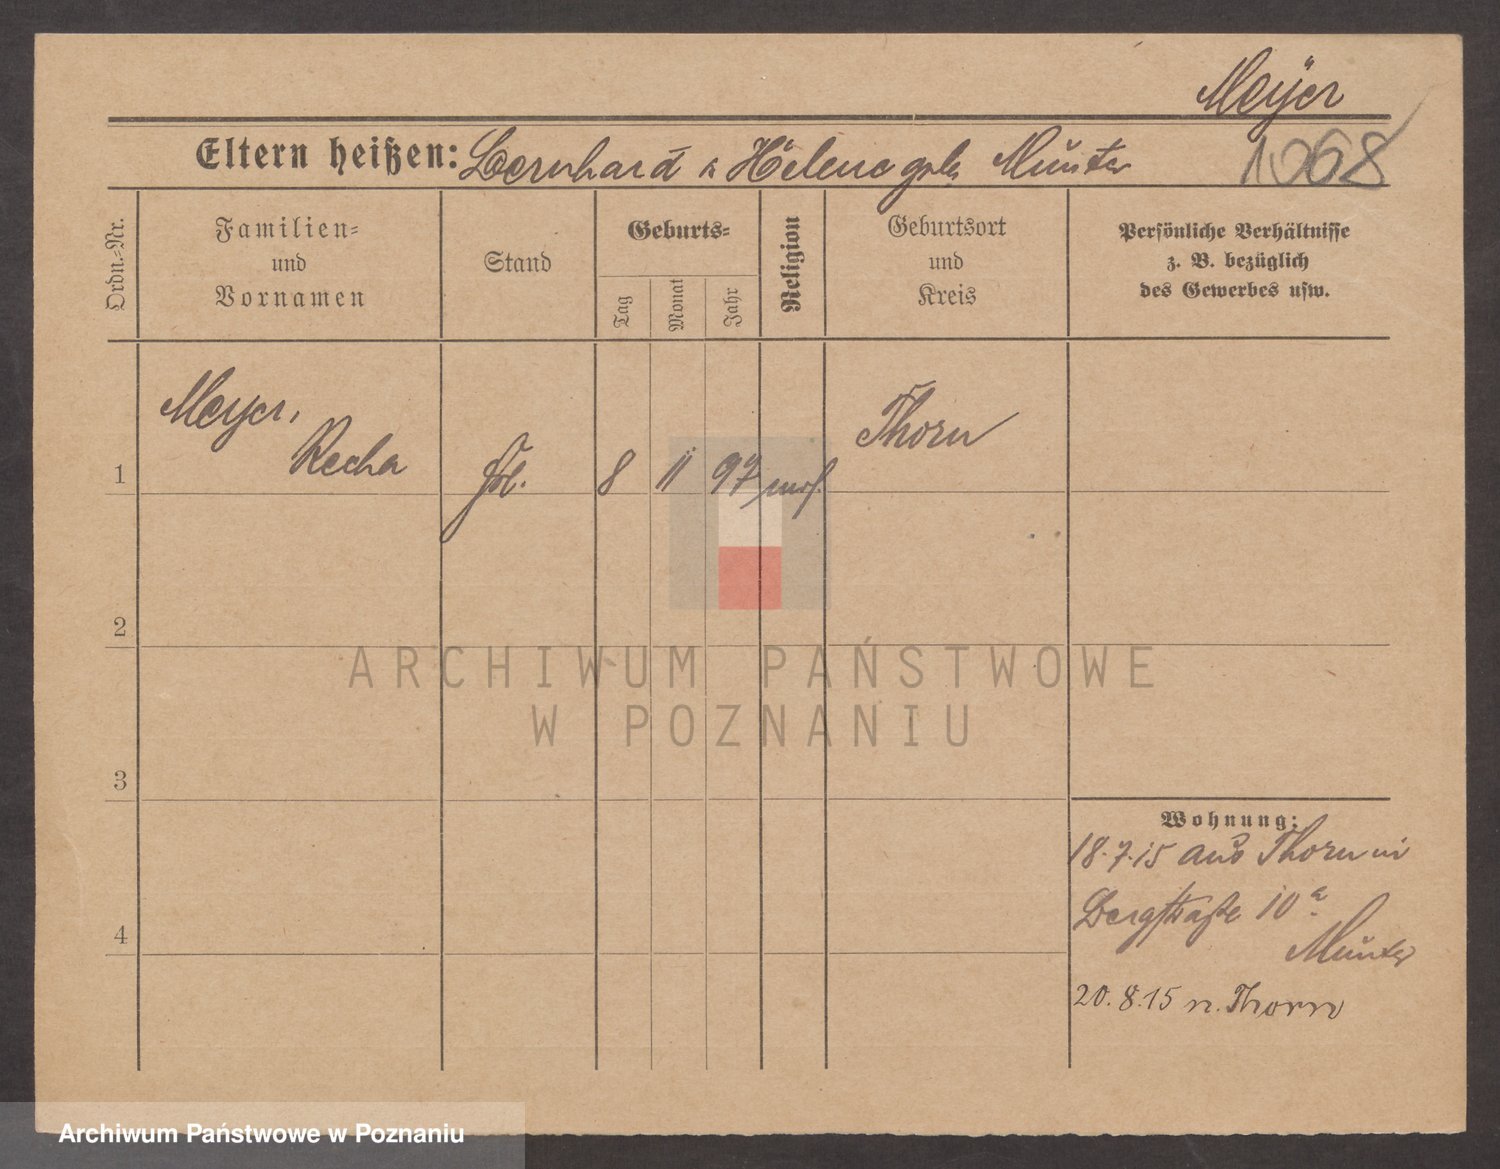 Meÿer
Eltern heißen: Bernhard u Helene geb. Munter
1068
Ordn.-Nr.
Familien-
und
Vornamen
Stand
Geburts-
Tag
Monat
Jahr
Religion
Geburtsort
und
Kreis
Persönliche Verhältnisse
z. B. bezüglich
des Gewerbes usw.
1
Meyer,
Recha
Frl.
8
11
97
mos.
Thorn
2
3
4
Wohnung:
18.7.15 aus Thorn in
Bergstraße 10a
Munter
20.8.15 n. Thorn
ARCHIWUM PAŃSTWOWE
W POZNANIU
Archiwum Państwowe w Poznaniu